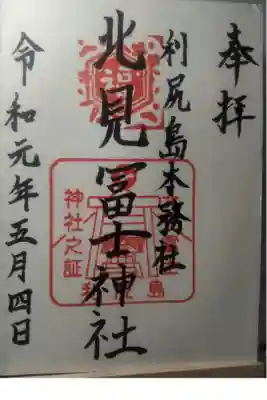 奉拝
利尻島本務社
北見冨士神社
神社之証
令和元年五月四日